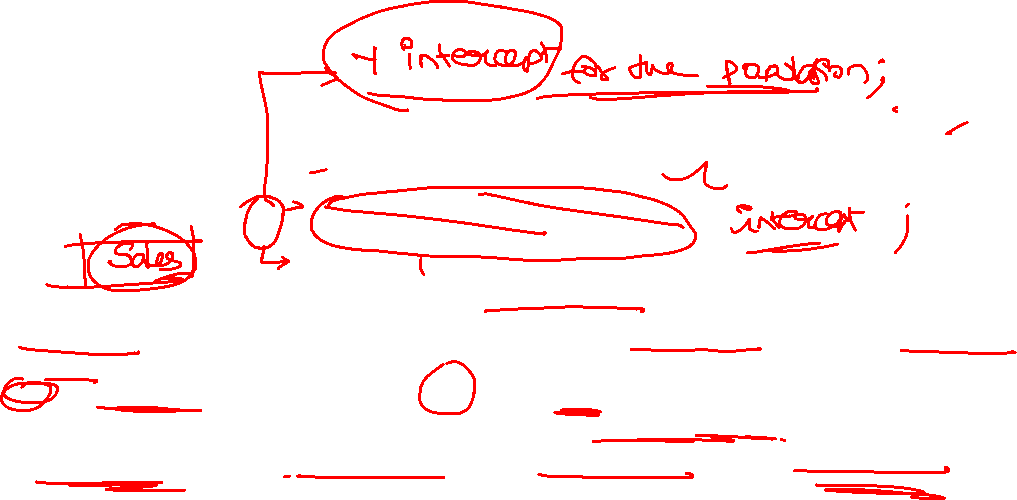 Y intercept for the population;
intercept ;
Sales